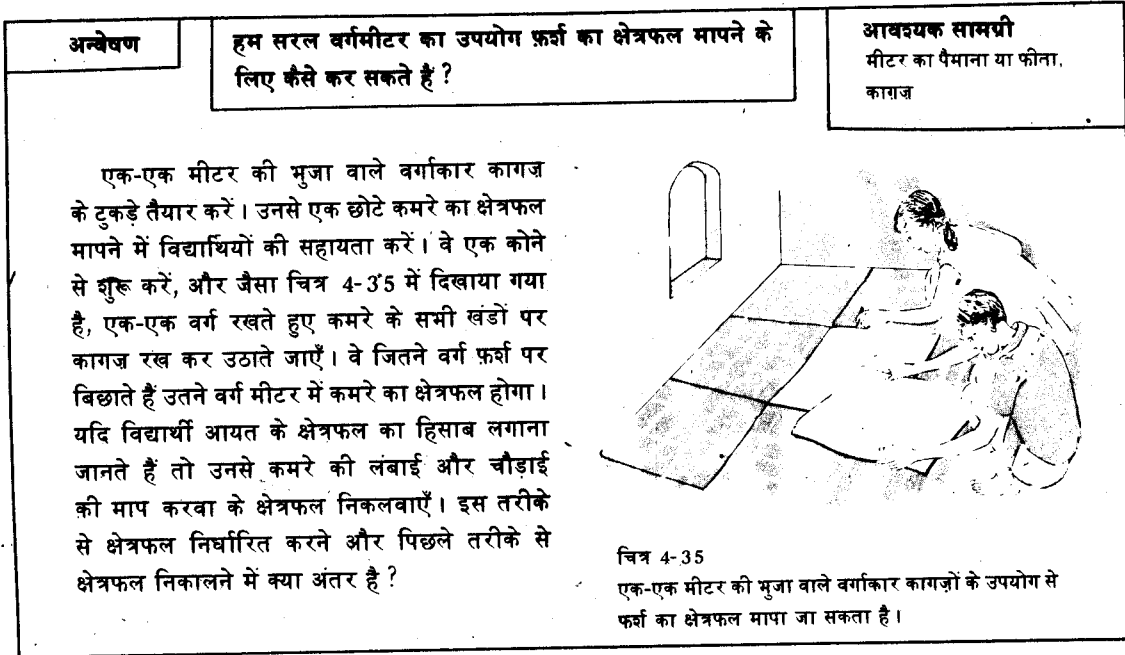 अन्वेषण
हम सरल वर्गमीटर का उपयोग फ़र्श का क्षेत्रफल मापने के
लिए कैसे कर सकते हैं ?
आवश्यक सामग्री
मीटर का पैमाना या फीता,
काग़ज़
एक-एक मीटर की भुजा वाले वर्गाकार कागज़
के टुकड़े तैयार करें। उनसे एक छोटे कमरे का क्षेत्रफल
मापने में विद्यार्थियों की सहायता करें। वे एक कोने
से शुरू करें, और जैसा चित्र 4-35 में दिखाया गया
है, एक-एक वर्ग रखते हुए कमरे के सभी खंडों पर
कागज़ रख कर उठाते जाएँ। वे जितने वर्ग फ़र्श पर
बिछाते हैं उतने वर्ग मीटर में कमरे का क्षेत्रफल होगा।
यदि विद्यार्थी आयत के क्षेत्रफल का हिसाब लगाना
जानते हैं तो उनसे कमरे की लंबाई और चौड़ाई
की माप करवा के क्षेत्रफल निकलवाएँ। इस तरीके
से क्षेत्रफल निर्धारित करने और पिछले तरीके से
क्षेत्रफल निकालने में क्या अंतर है ?
चित्र 4-35
एक-एक मीटर की भुजा वाले वर्गाकार कागज़ों के उपयोग से
फर्श का क्षेत्रफल मापा जा सकता है।